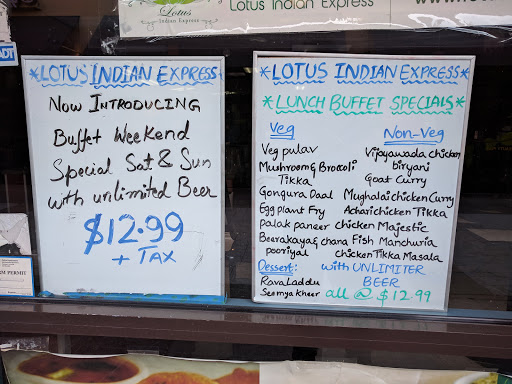 Lotus
Indian Express
Lotus Indian Express
ADT
*LOTUS INDIAN EXPRESS*
NOW INTRODUCING
Buffet Weekend
Special Sat & Sun
with unlimited Beer
$12.99
+ TAX
PERMIT
*LOTUS INDIAN EXPRESS*
*LUNCH BUFFET SPECIALS*
Veg
Veg pulav
Mushroom & Broccoli
Tikka
Gongura Daal
Egg plant Fry
Palak paneer
Beerakaya & chana
pooriyal
Dessert:
Rava Laddu
Seemya kheer
Non-Veg
Vijayawada chicken
biryani
Goat Curry
Mughalai chicken Curry
Achari chicken Tikka
Chicken Majestic
Fish Manchuria
chicken Tikka Masala
with UNLIMITER
BEER
all @ $12.99